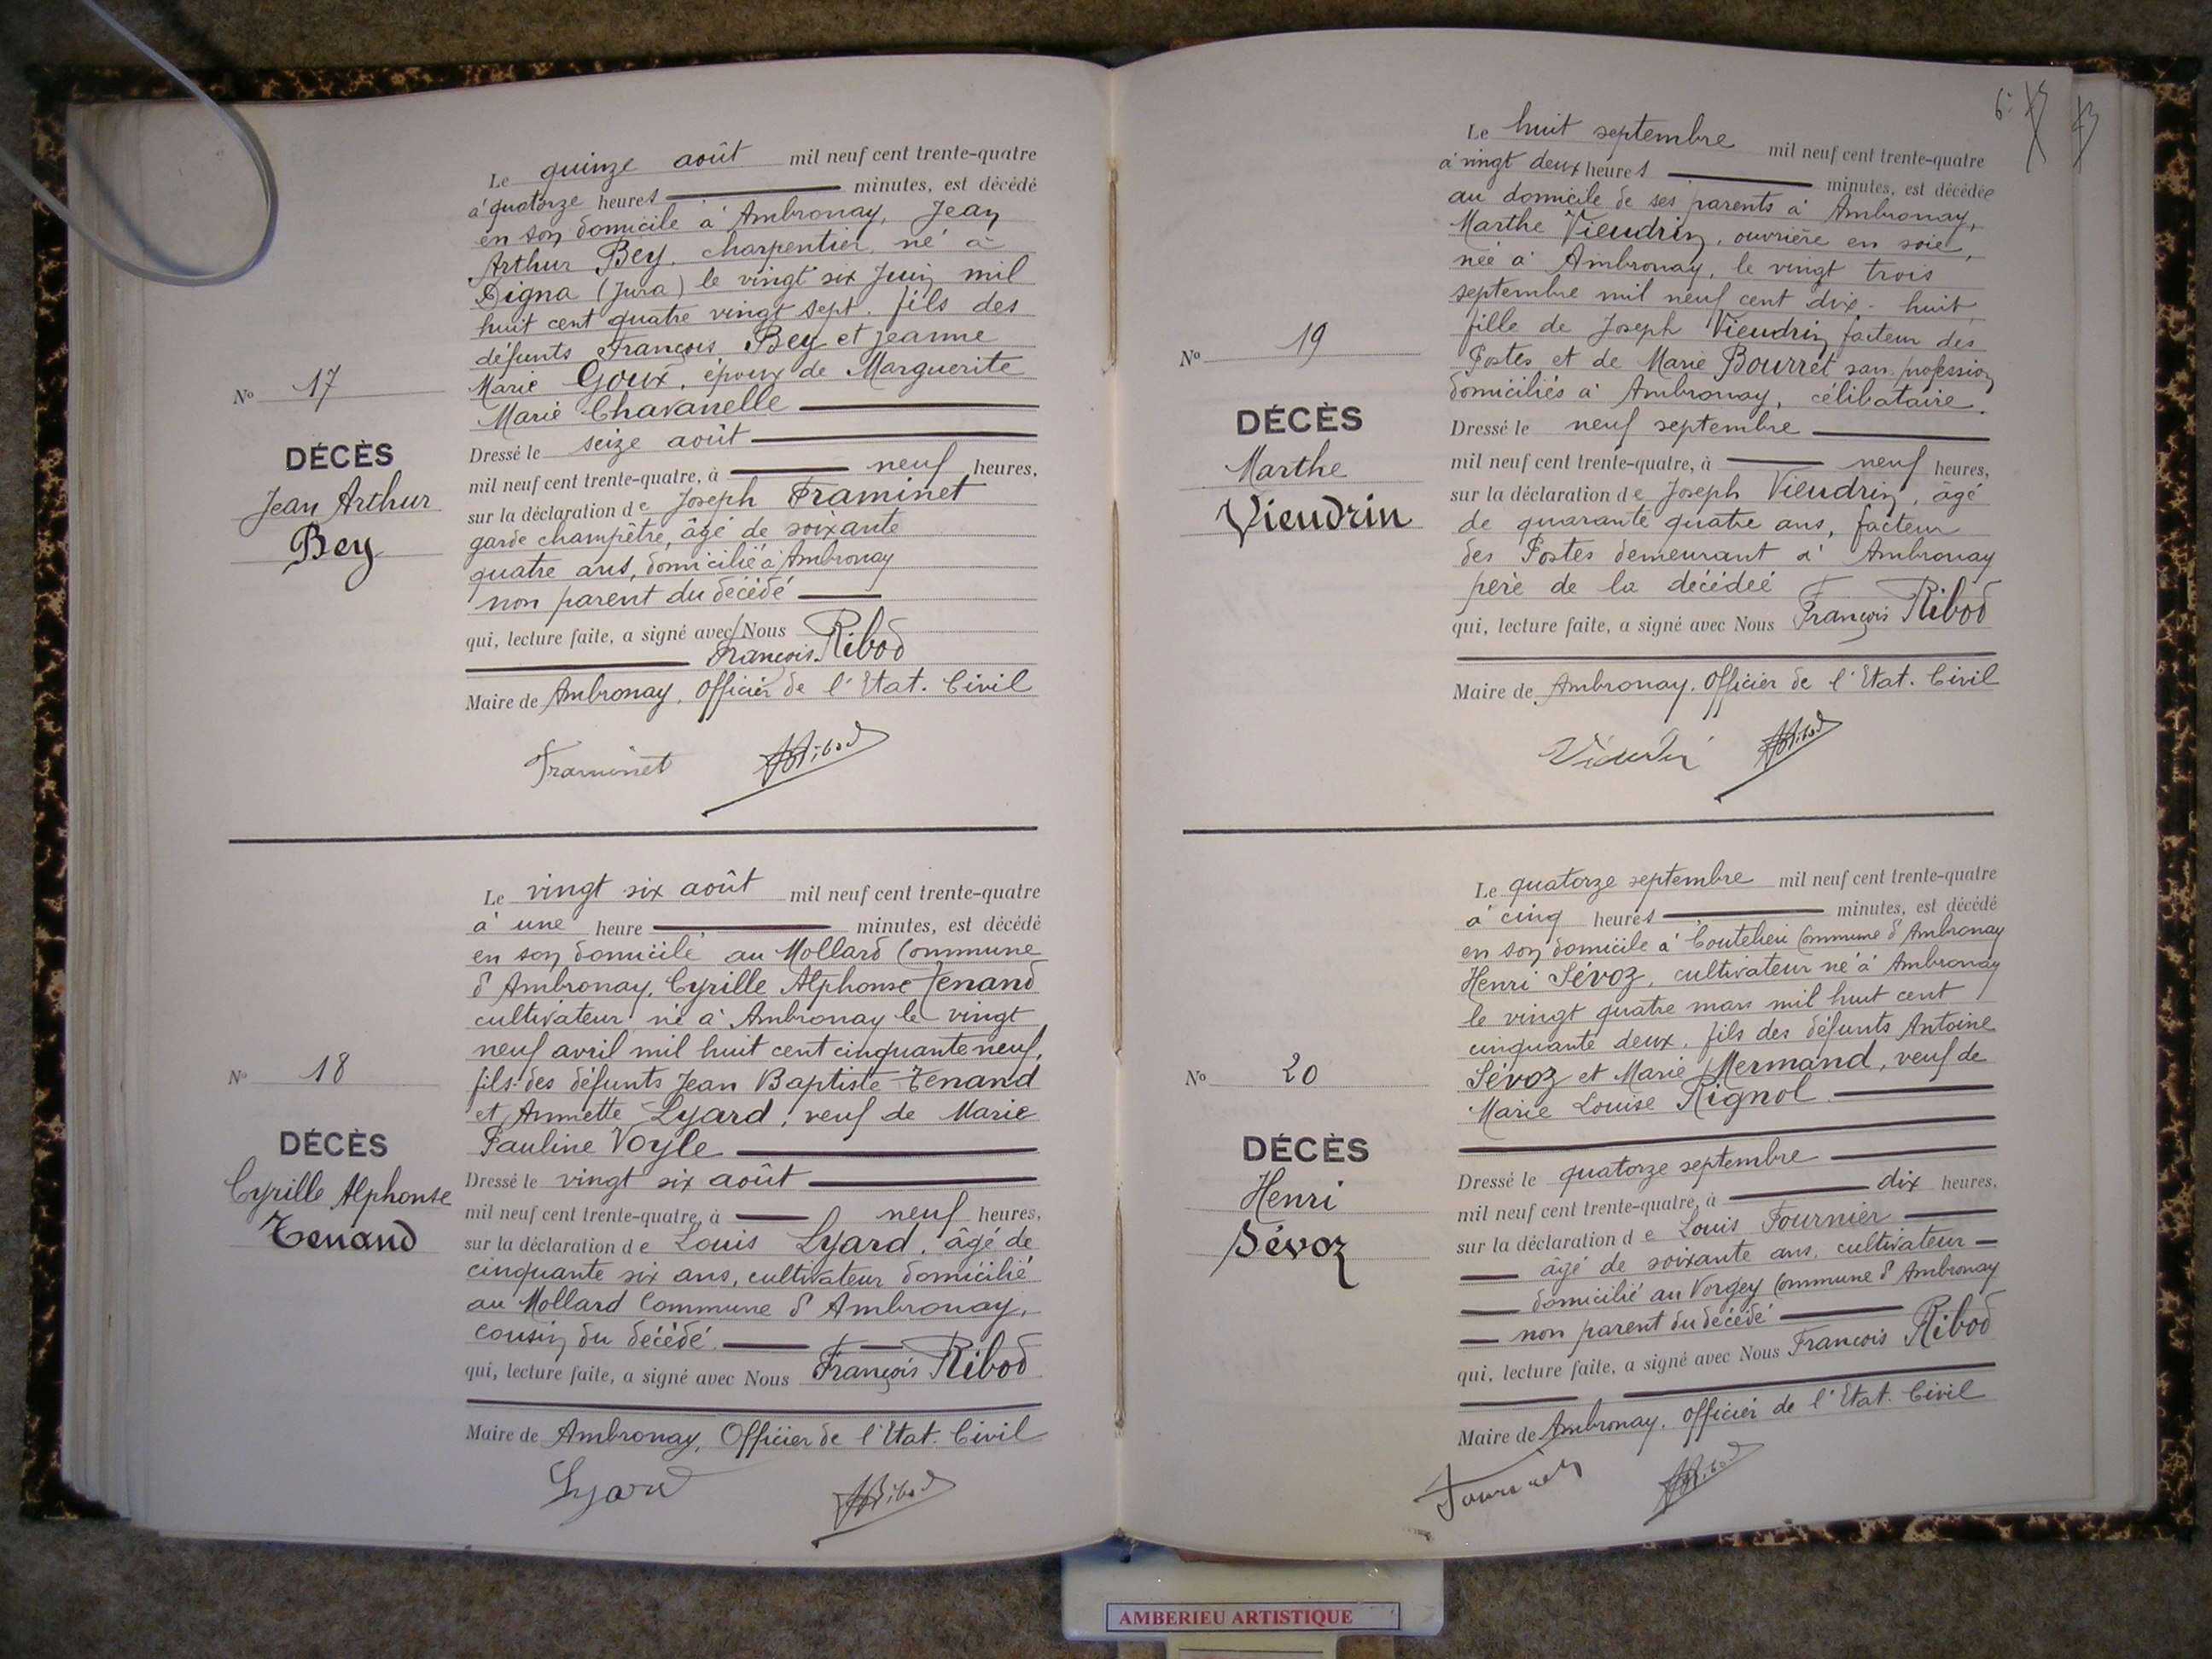 Le quinze août mil neuf cent trente-quatre
à quatorze heures minutes, est décédé
en son domicile à Ambronay, Jean
Arthur Bey, charpentier, né à
Digna (Jura) le vingt six Juin mil
huit cent quatre vingt sept, fils des
défunts François Bey et Jeanne
Marie Goux, époux de Marguerite
Marie Chavanelle
N° 17
DÉCÈS
Jean Arthur
Bey
Dressé le seize août
mil neuf cent trente-quatre, à neuf heures,
sur la déclaration de Joseph Framinet
garde champêtre, âgé de soixante
quatre ans, domicilié à Ambronay
non parent du décédé
qui, lecture faite, a signé avec Nous
François Ribod
Maire de Ambronay, Officier de l'Etat. Civil
Framinet Ribod
Le vingt six août mil neuf cent trente-quatre
à une heure minutes, est décédé
en son domicile au Mollard Commune
d'Ambronay, Cyrille Alphonse Tenand
cultivateur né à Ambronay le vingt
neuf avril mil huit cent cinquante neuf,
fils des défunts Jean Baptiste Tenand
et Annette Lyard, veuf de Marie
Pauline Voyle
N° 18
DÉCÈS
Cyrille Alphonse
Tenand
Dressé le vingt six août
mil neuf cent trente-quatre, à neuf heures,
sur la déclaration de Louis Lyard, âgé de
cinquante six ans, cultivateur domicilié
au Mollard Commune d'Ambronay,
cousin du décédé.
qui, lecture faite, a signé avec Nous François Ribod
Maire de Ambronay, Officier de l'Etat. Civil
Lyard Ribod
Le huit septembre mil neuf cent trente-quatre
à vingt deux heures minutes, est décédée
au domicile de ses parents à Ambronay,
Marthe Vieudrin, ouvrière en soie,
née à Ambronay, le vingt trois
septembre mil neuf cent dix-huit,
fille de Joseph Vieudrin facteur des
Postes et de Marie Bourret sans profession
domiciliés à Ambronay, célibataire.
N° 19
DÉCÈS
Marthe
Vieudrin
Dressé le neuf septembre
mil neuf cent trente-quatre, à neuf heures,
sur la déclaration de Joseph Vieudrin, âgé
de quarante quatre ans, facteur
des Postes demeurant à Ambronay
père de la décédée
qui, lecture faite, a signé avec Nous François Ribod
Maire de Ambronay, Officier de l'Etat. Civil
Vieudrin Ribod
Le quatorze septembre mil neuf cent trente-quatre
à cinq heures minutes, est décédé
en son domicile à Coutelieu Commune d'Ambronay
Henri Sévoz, cultivateur né à Ambronay
le vingt quatre mars mil huit cent
cinquante deux, fils des défunts Antoine
Sévoz et Marie Mermand, veuf de
Marie Louise Rignol.
N° 20
DÉCÈS
Henri
Sévoz
Dressé le quatorze septembre
mil neuf cent trente-quatre, à dix heures,
sur la déclaration de Louis Fournier
âgé de soixante ans, cultivateur
domicilié au Vorgey Commune d'Ambronay
non parent du décédé
qui, lecture faite, a signé avec Nous François Ribod
Maire de Ambronay, Officier de l'Etat. Civil
Fournier Ribod
AMBERIEU ARTISTIQUE